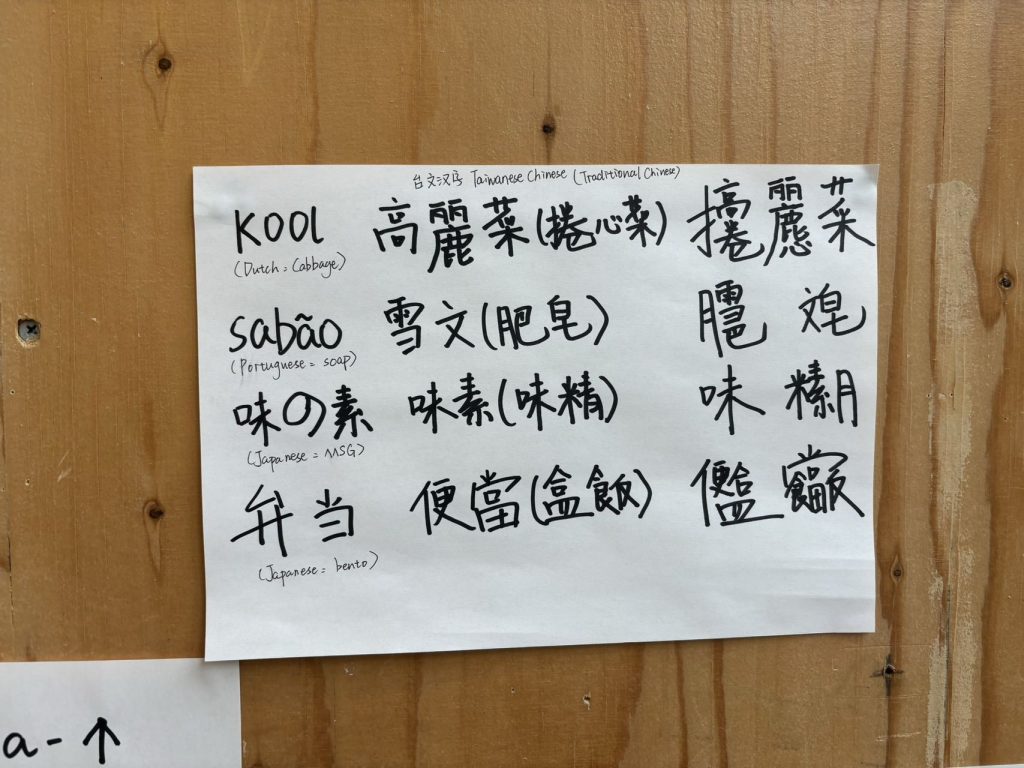 台文汉字 Taiwanese Chinese (Traditional Chinese)
KOOL 高麗菜(捲心菜) 菜
(Dutch = Cabbage)
sabão 雪文(肥皂)
(Portuguese = soap)
味の素 味素(味精) 味
(Japanese = MSG)
弁当 便當(盒飯)
(Japanese = bento)
a-↑